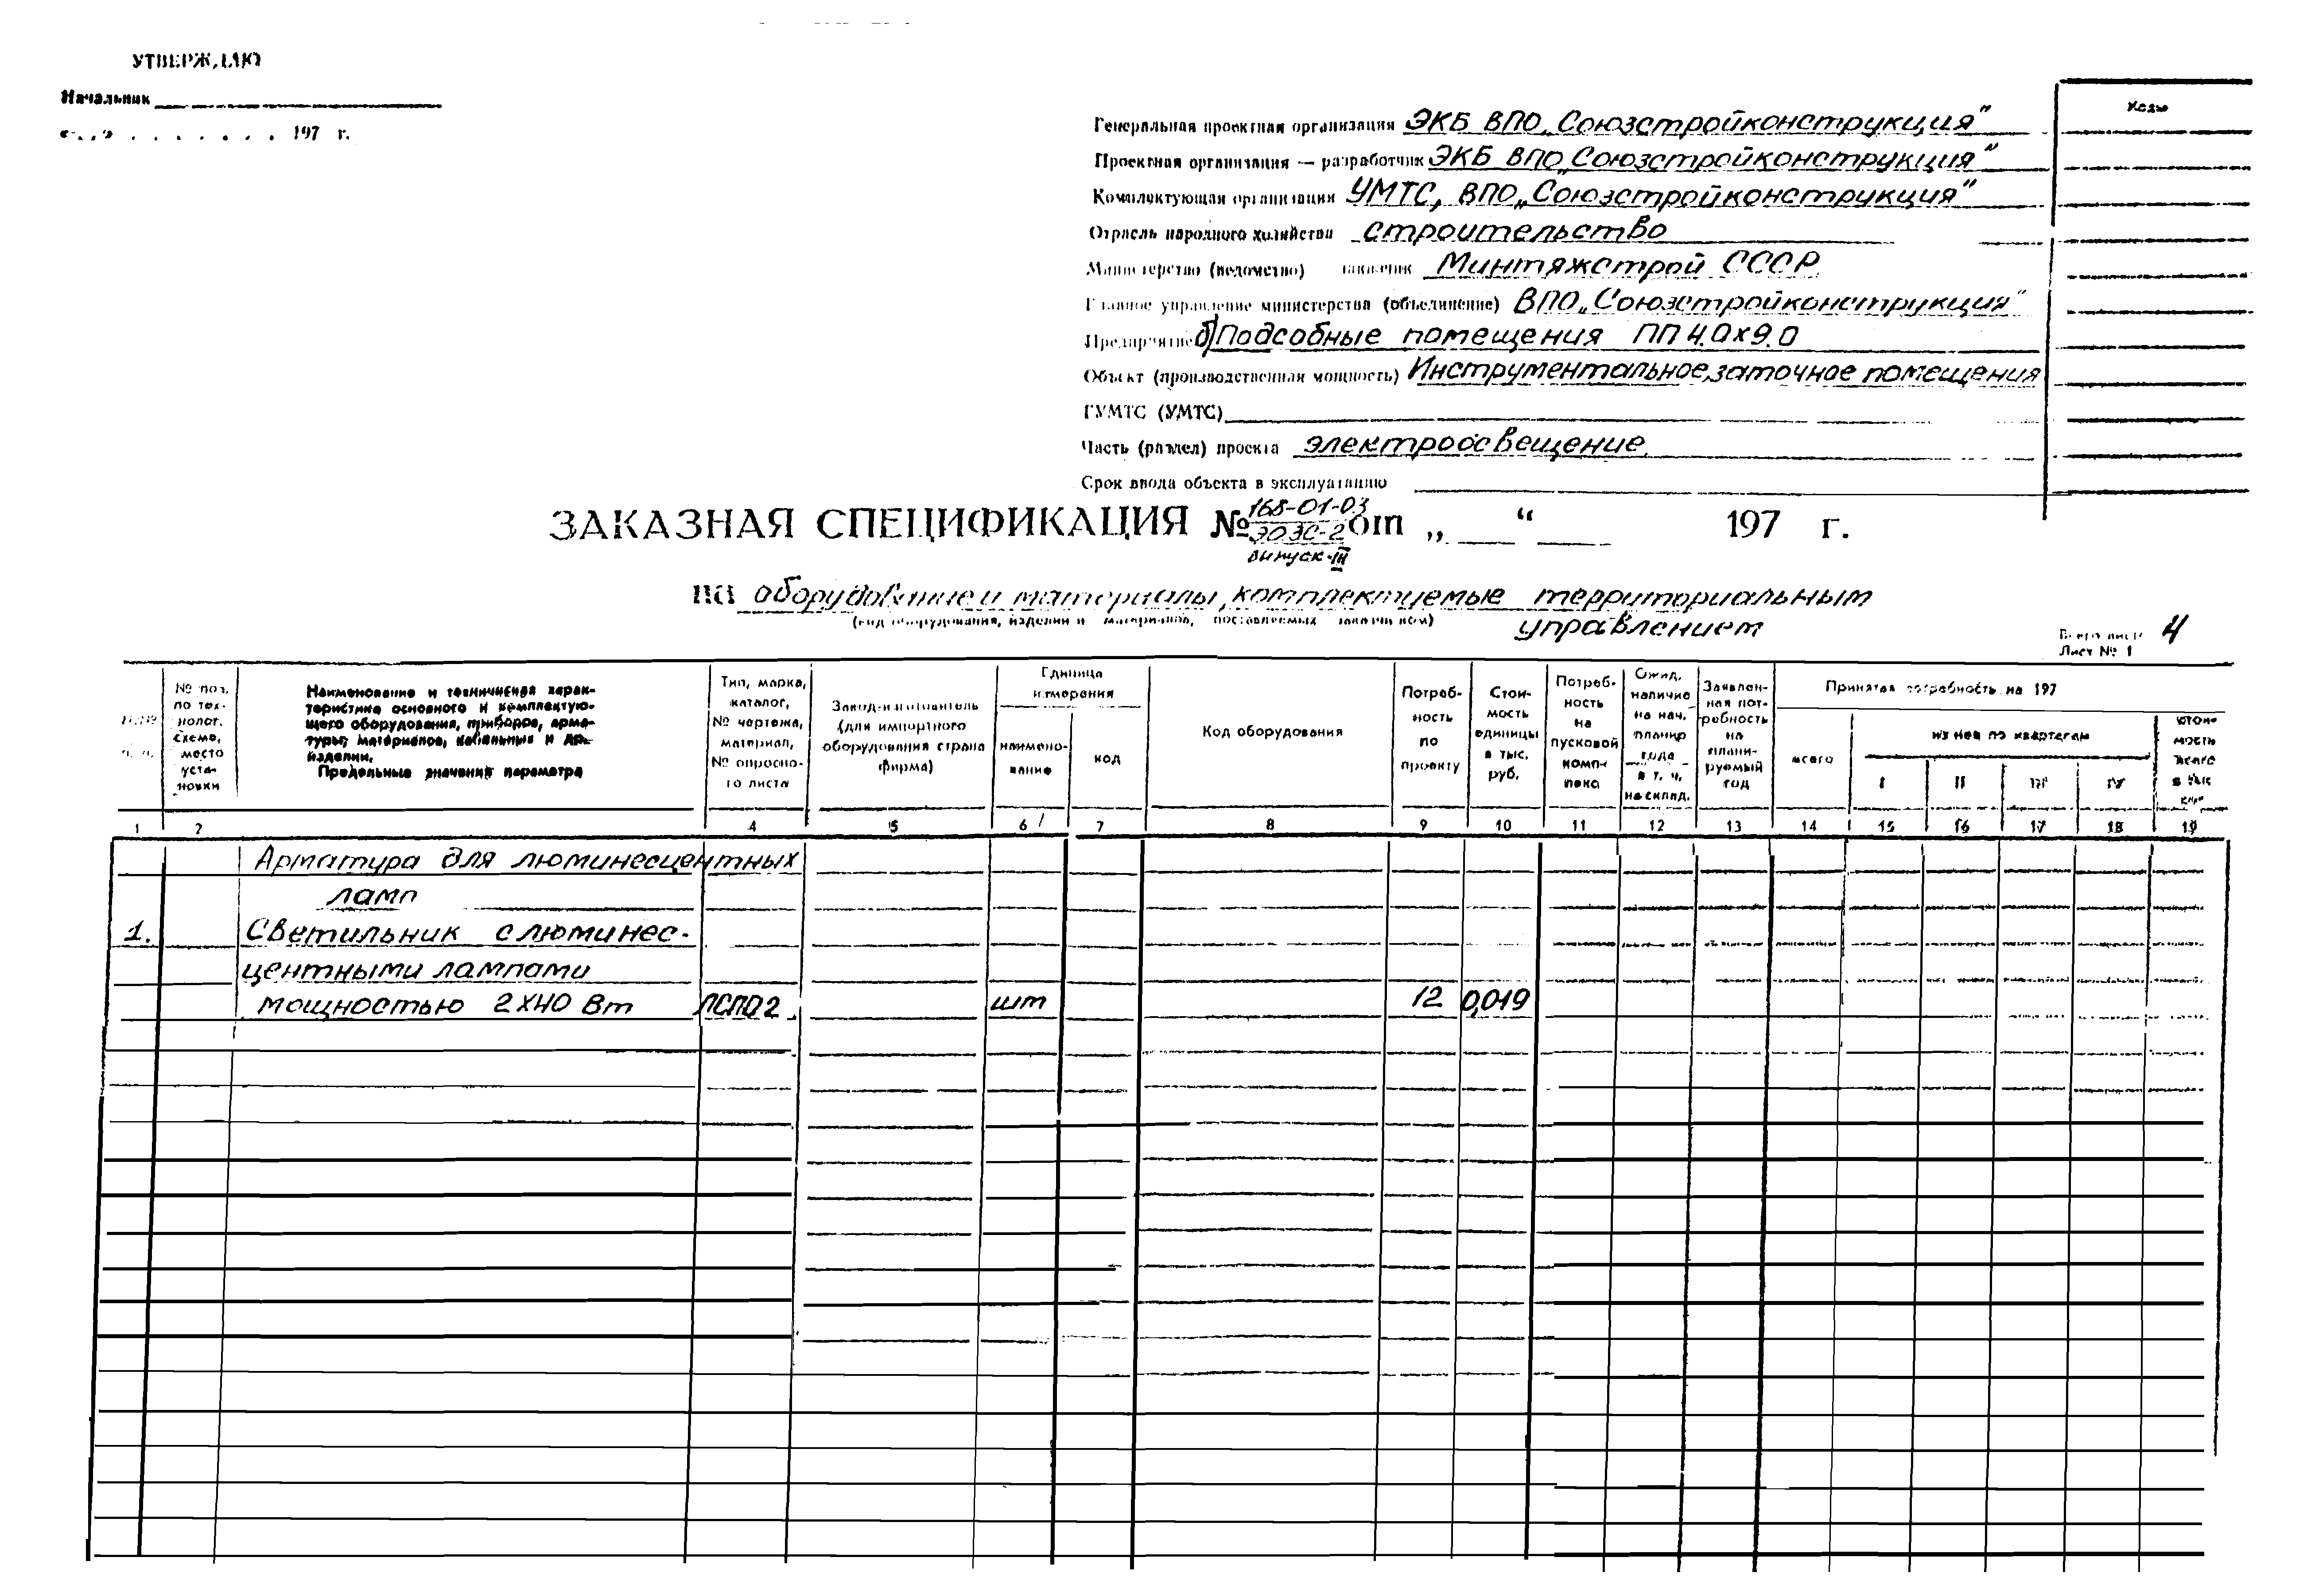 УТВЕРЖДАЮ
Начальник
« . . » . . . . . . . 197 г.
Коды
Генеральная проектная организация ЭКБ ВПО „Союзстройконструкция"
Проектная организация — разработчик ЭКБ ВПО „Союзстройконструкция"
Комплектующая организация УМТС, ВПО „Союзстройконструкция"
Отрасль народного хозяйства строительство
Министерство (ведомство) заказчик Минтяжстрой СССР
Главное управление министерства (объединение) ВПО „Союзстройконструкция"
Предприятие б) Подсобные помещения ПП 4.0х9.0
Объект (производственная мощность) Инструментальное, заточное помещения
ГУМТС (УМТС)
Часть (раздел) проекта электроосвещение
Срок ввода объекта в эксплуатацию
ЗАКАЗНАЯ СПЕЦИФИКАЦИЯ № 168-01-03 ЭОЗС-2 выпуск-III от „ “ 197 г.
на оборудование и материалы, комплектуемые территориальным
(вид оборудования, изделий и материалов, поставляемых заказчиком) управлением
Всего листов 4
Лист № 1
№ поз. по технолог. схеме, место установки
Наименование и техническая характеристика основного и комплектующего оборудования, приборов, арматуры, материалов, кабельных и др. изделий. Предельные значения параметра
Тип, марка, каталог, № чертежа, материал, № опросного листа
Завод-изготовитель (для импортного оборудования страна фирма)
Единица измерения
наименование
код
Код оборудования
Потребность по проекту
Стоимость единицы в тыс. руб.
Потребность на пусковой комплекс
Ожид. наличие на нач. планир года в т. ч. на склад.
Заявленная потребность на планируемый год
Принятая потребность на 197
всего
из нее по кварталам
I II III IV
стоимость всего в тыс руб
1 2 4 5 6 7 8 9 10 11 12 13 14 15 16 17 18 19
Арматура для люминесцентных
ламп
1. Светильник с люминес-
центными лампами
мощностью 2х40 Вт ЛСП02 шт 12 0,019